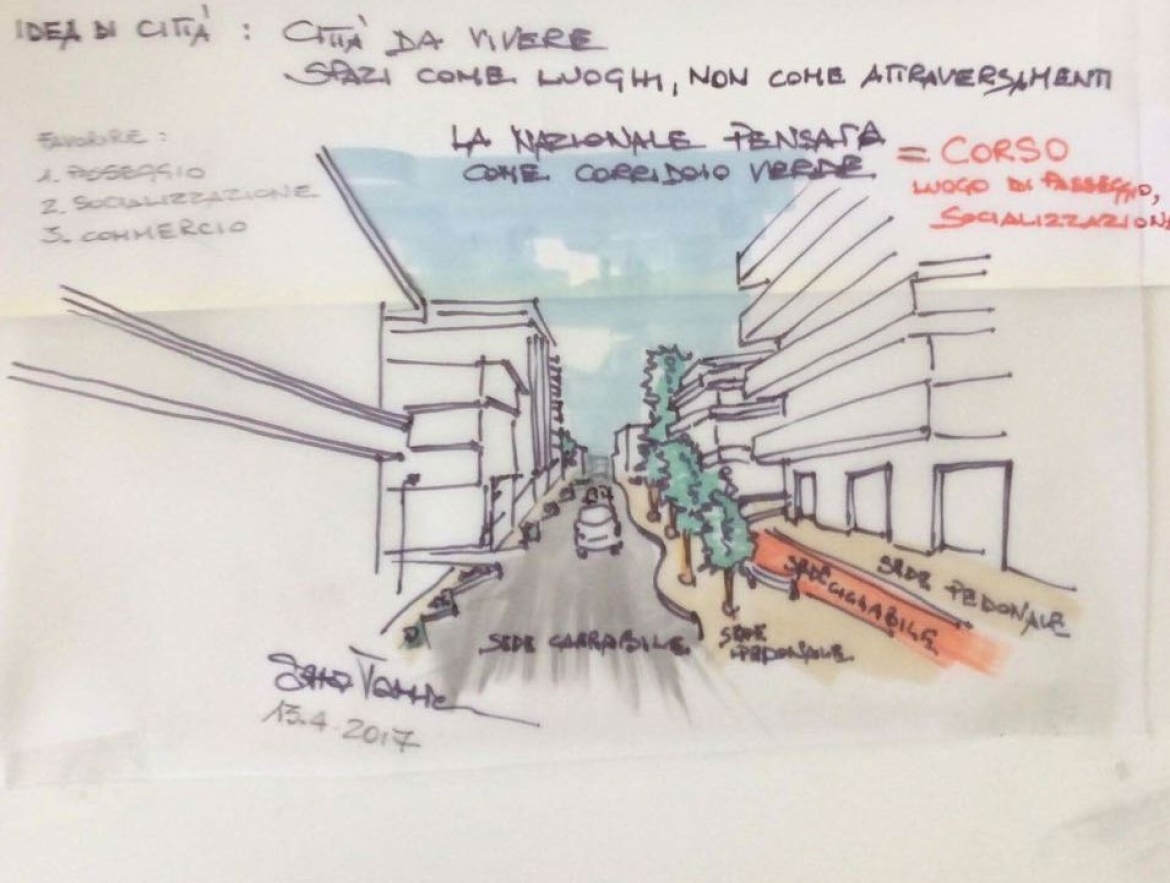 IDEA DI CITTÀ : CITTÀ DA VIVERE
SPAZI COME LUOGHI, NON COME ATTRAVERSAMENTI
FAVORIRE :
1. PASSEGGIO
2. SOCIALIZZAZIONE
3. COMMERCIO
LA NAZIONALE PENSATA
COME CORRIDOIO VERDE
= CORSO
LUOGO DI PASSEGGIO,
SOCIALIZZAZION
SEDE PEDONALE
SEDE CICLABILE
SEDE CARRABILE
SEDE
PEDONALE
13.4.2017